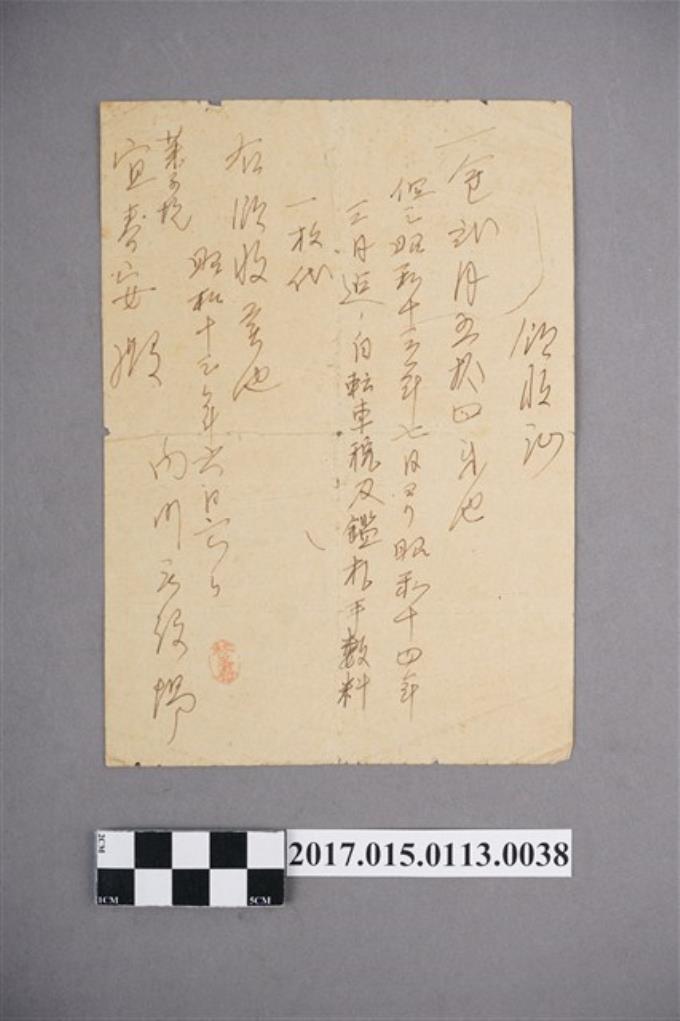 領收証
一金貳円五拾四錢也
但シ昭和十三年七月ヨリ昭和十四年
三月迄ノ自転車税及鑑札手数料
一枚代
右領收候也
昭和十三年六月六日
内門庄役場
宜壽安殿
2CM
1CM
5CM
2017.015.0113.0038